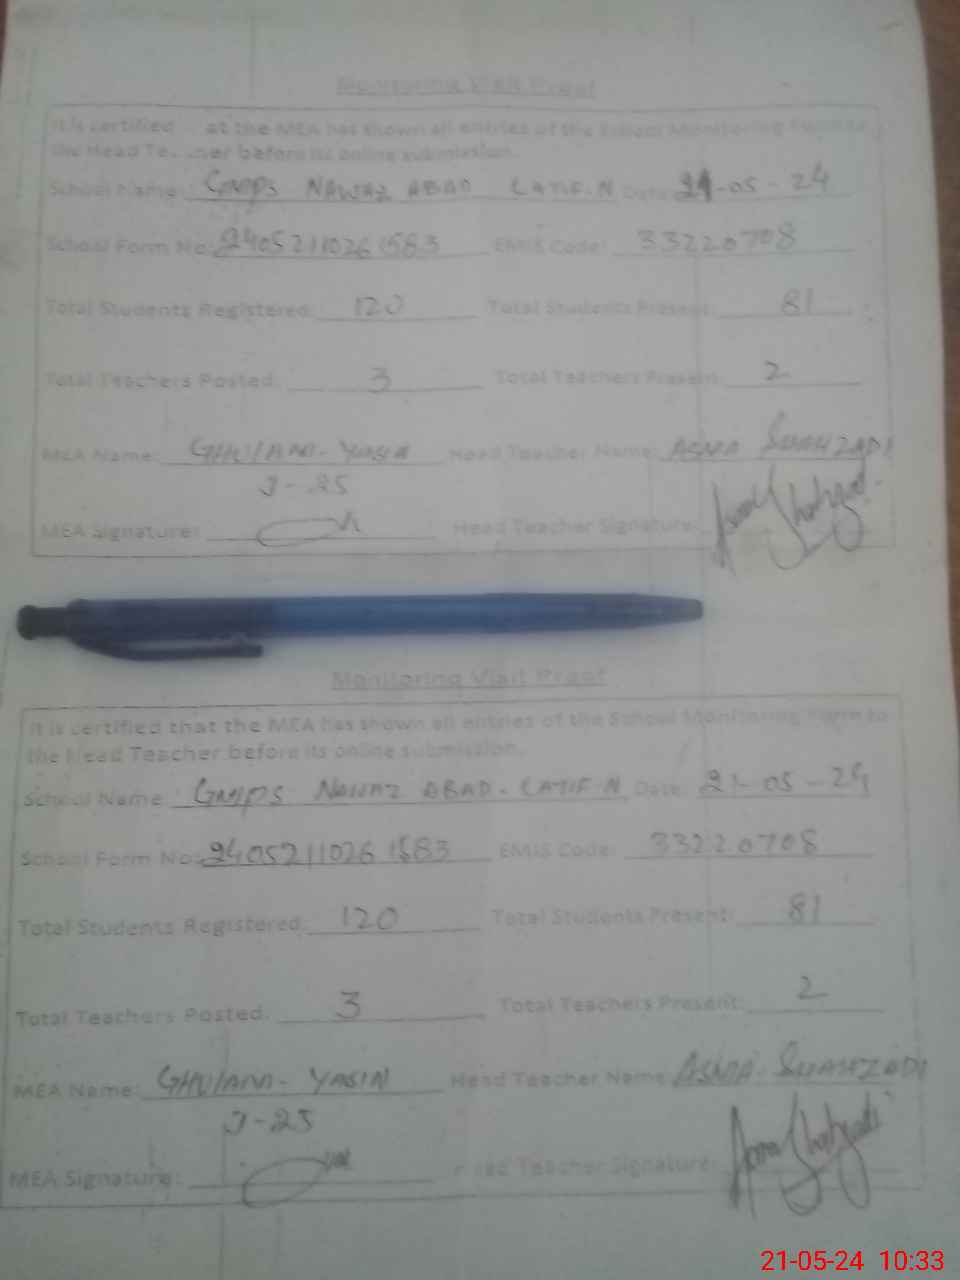 Monitoring Visit Proof
It is certified at the MEA has shown all entries of the School Monitoring Form to
the Head Teacher before its online submission.
School Name: GMPS NAWAZ ABAD LATIF.N Date: 21-05-24
School Form No: 24052110261583 EMIS Code: 33220708
Total Students Registered: 120 Total Students Present: 81
Total Teachers Posted: 3 Total Teachers Present: 2
MEA Name: GHULAM-YASIN Head Teacher Name: ASMA SHAHZADI
J-25
MEA Signature: Head Teacher Signature: Asma Shahzadi
Monitoring Visit Proof
It is certified that the MEA has shown all entries of the School Monitoring Form to
the Head Teacher before its online submission.
School Name: GMPS NAWAZ ABAD-LATIF.N Date: 21-05-24
School Form No: 24052110261583 EMIS Code: 33220708
Total Students Registered: 120 Total Students Present: 81
Total Teachers Posted: 3 Total Teachers Present: 2
MEA Name: GHULAM-YASIN Head Teacher Name: ASMA SHAHZADI
J-25
MEA Signature: Head Teacher Signature: Asma Shahzadi
21-05-24 10:33